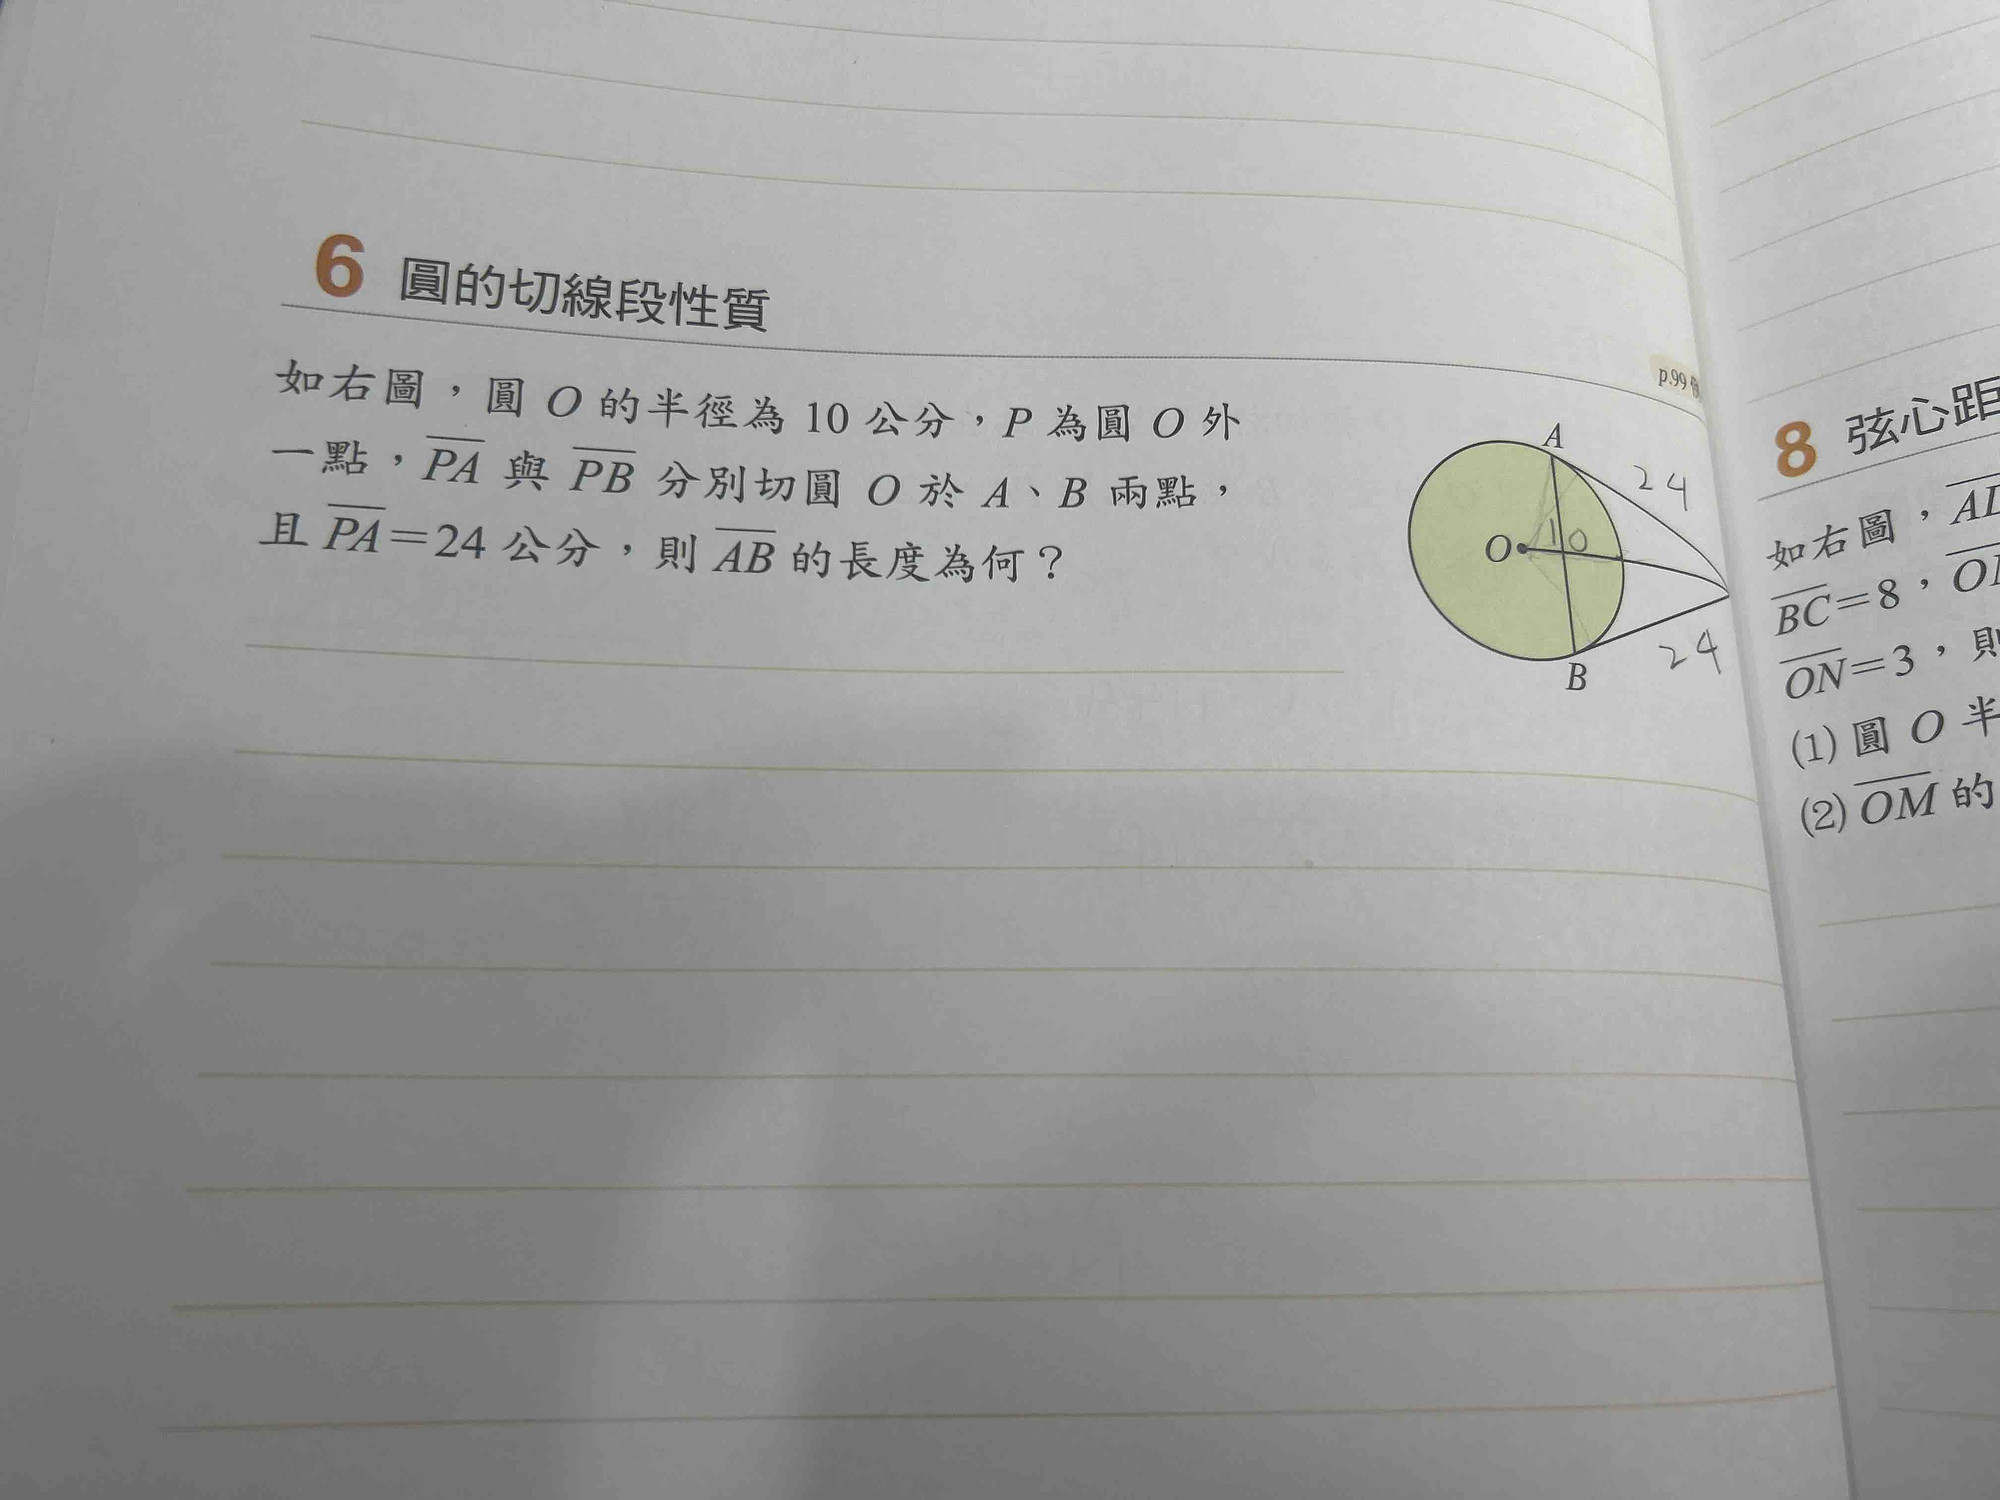 6 圓的切線段性質
p.99
如右圖，圓 O 的半徑為 10 公分，P 為圓 O 外
一點，PA 與 PB 分別切圓 O 於 A、B 兩點，
且 PA＝24 公分，則 AB 的長度為何？
A
24
O
10
24
B
8 弦心距
如右圖，
BC＝8，
ON＝3，則
(1) 圓 O 半
(2) OM 的